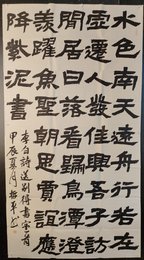 水色南天遠舟行若在
虛遷人發佳興吾子訪
閒居日落看歸鳥潭澄
羨躍魚聖朝思賈誼應
降紫泥書
李白詩送別得書字一首
甲辰夏月